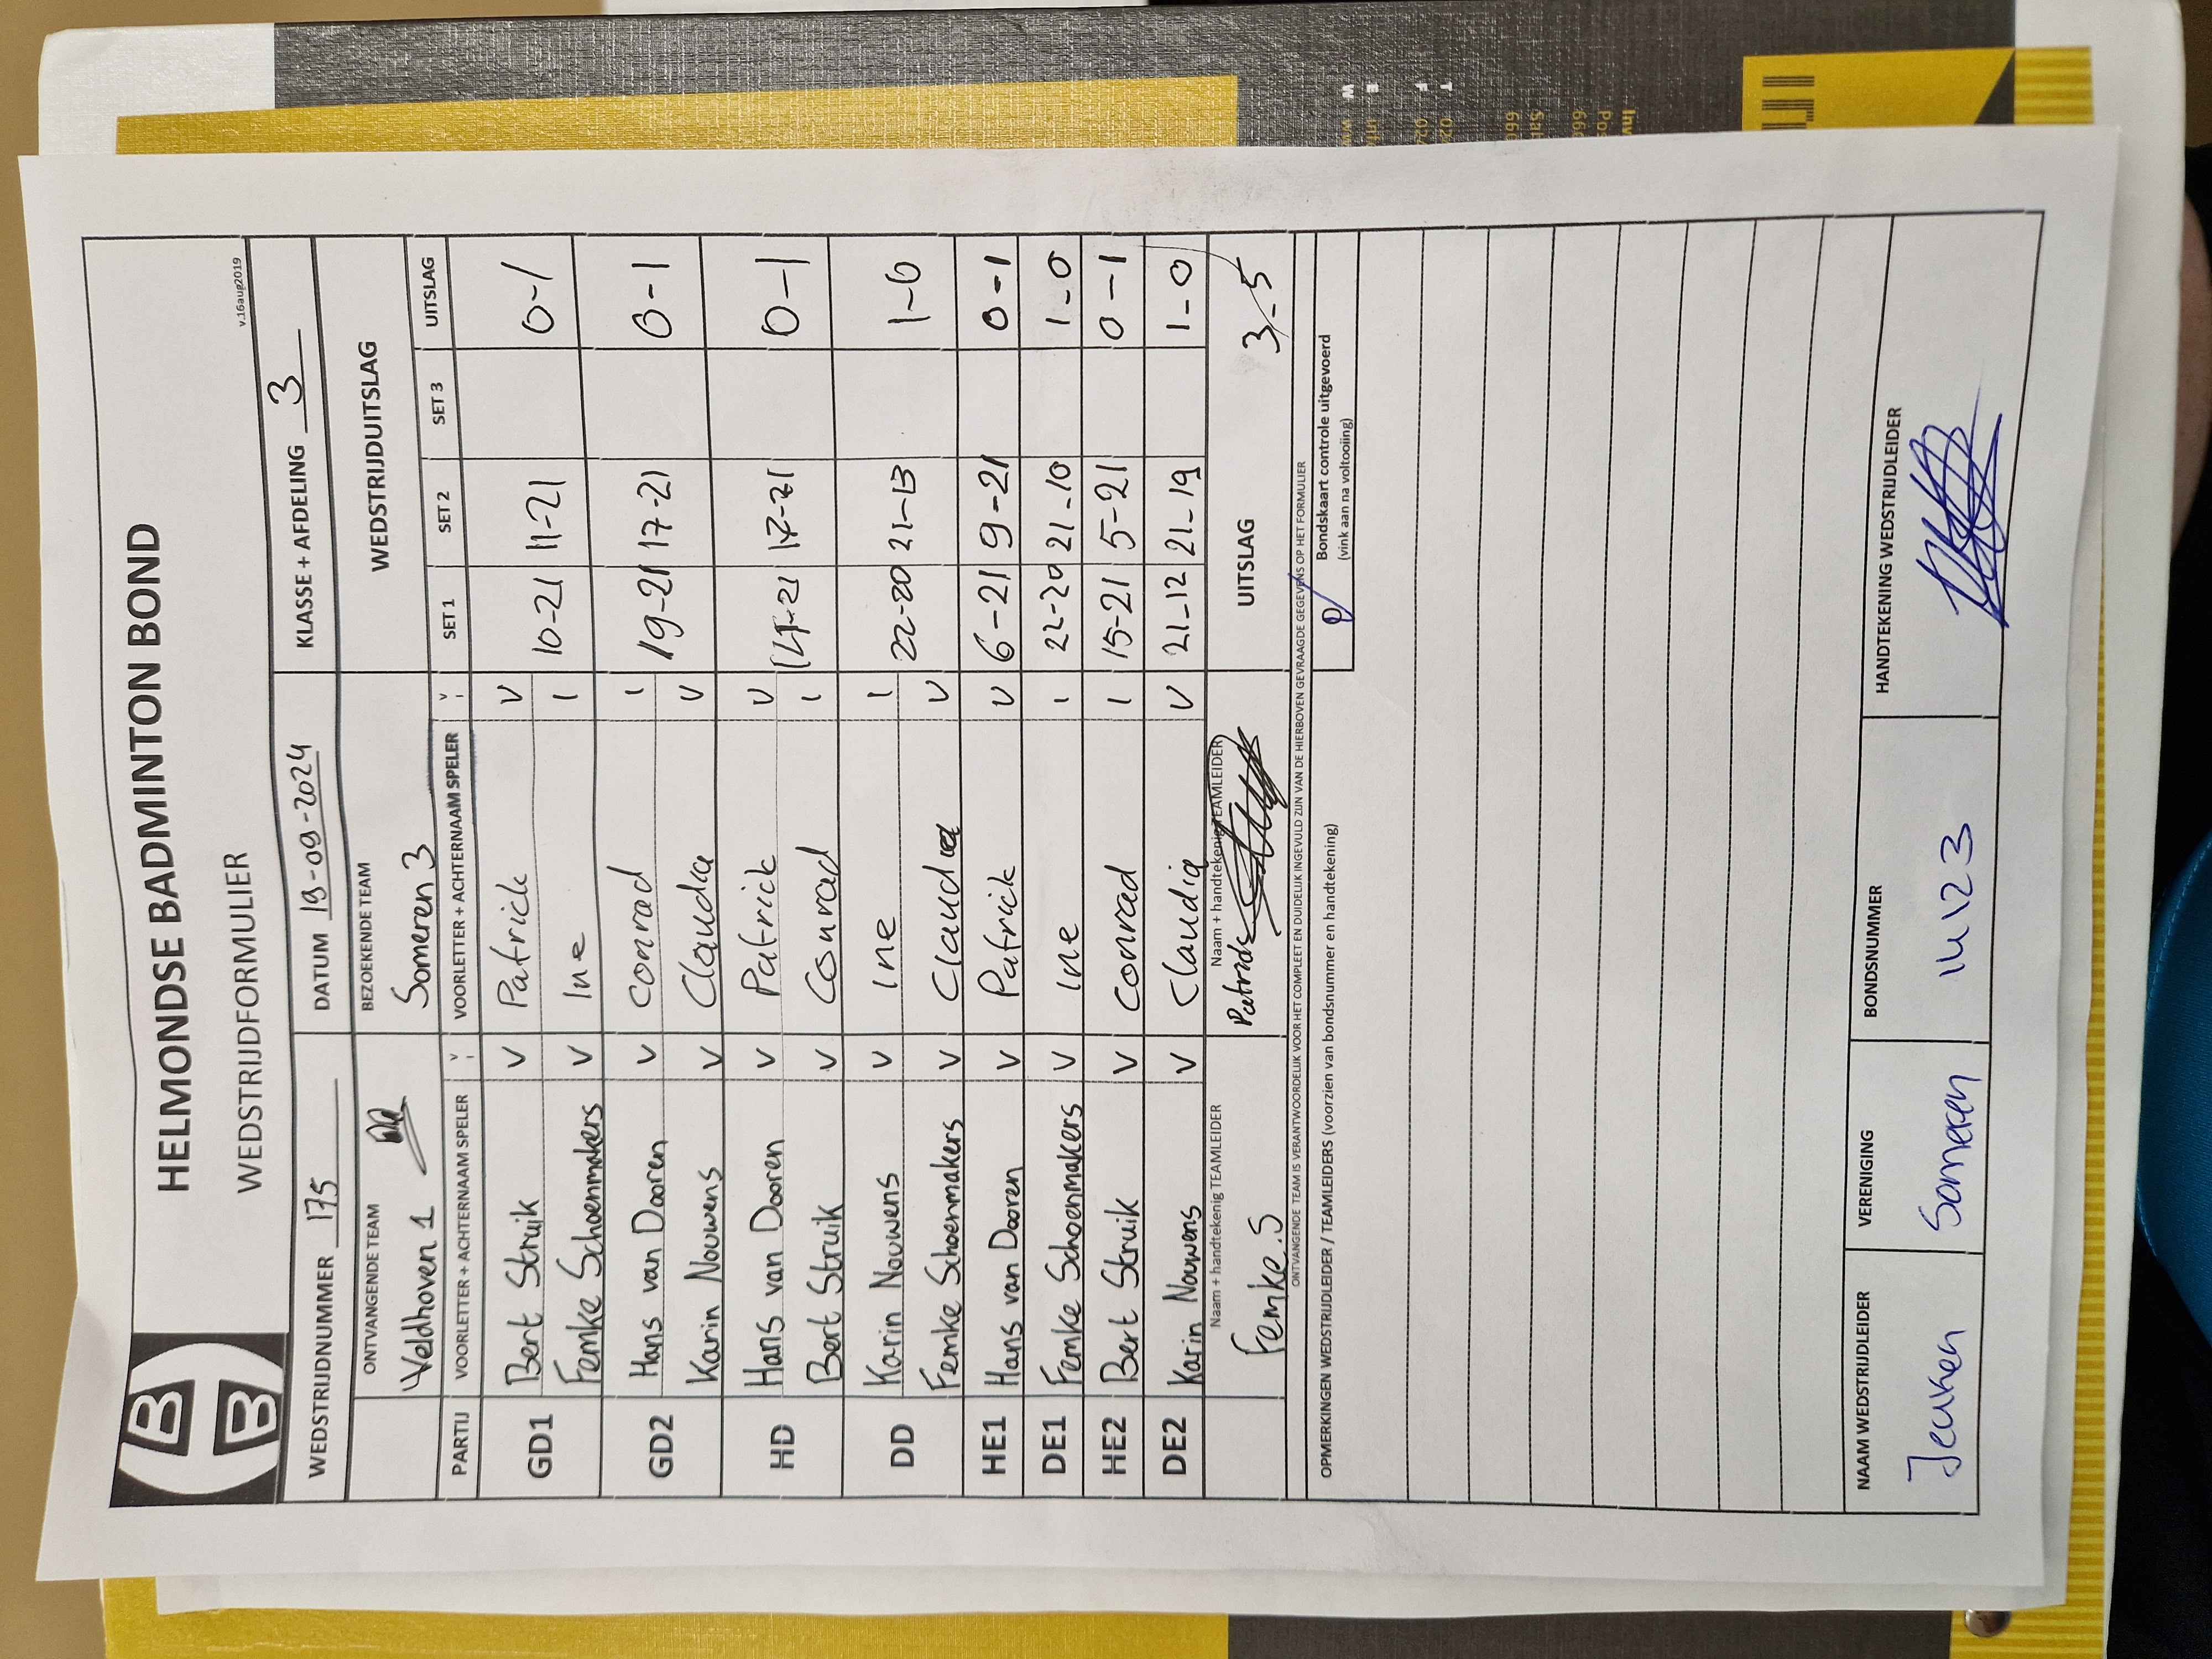 HELMONDSE BADMINTON BOND
WEDSTRIJDFORMULIER
v.16aug2019
WEDSTRIJDNUMMER 175 DATUM 19-09-2024 KLASSE + AFDELING 3
ONTVANGENDE TEAM BEZOEKENDE TEAM WEDSTRIJDUITSLAG
Veldhoven 1 Someren 3
PARTIJ VOORLETTER + ACHTERNAAM SPELER V VOORLETTER + ACHTERNAAM SPELER V SET 1 SET 2 SET 3 UITSLAG
GD1 Bert Struik V Patrick V 10-21 11-21 0-1
Femke Schoenmakers V Ine I
GD2 Hans van Dooren V Conrad I 19-21 17-21 0-1
Karin Nouwens V Claudia V
HD Hans van Dooren V Patrick V 17-21 0-1
Bert Struik V Conrad I
DD Karin Nouwens V Ine I 22-20 21-13 1-0
Femke Schoenmakers V Claudia V
HE1 Hans van Dooren V Patrick V 6-21 9-21 0-1
DE1 Femke Schoenmakers V Ine I 22-20 21-10 1-0
HE2 Bert Struik V Conrad I 15-21 5-21 0-1
DE2 Karin Nouwens V Claudia V 21-12 21-19 1-0
Naam + handtekenig TEAMLEIDER Naam + handtekenig TEAMLEIDER UITSLAG 3-5
Femke.S Patrick
ONTVANGENDE TEAM IS VERANTWOORDELIJK VOOR HET COMPLEET EN DUIDELIJK INGEVULD ZIJN VAN DE HIERBOVEN GEVRAAGDE GEGEVENS OP HET FORMULIER
OPMERKINGEN WEDSTRIJDLEIDER / TEAMLEIDERS (voorzien van bondsnummer en handtekening)
Bondskaart controle uitgevoerd
(vink aan na voltooiing)
NAAM WEDSTRIJDLEIDER VERENIGING BONDSNUMMER HANDTEKENING WEDSTRIJDLEIDER
Jeuken Someren 14123